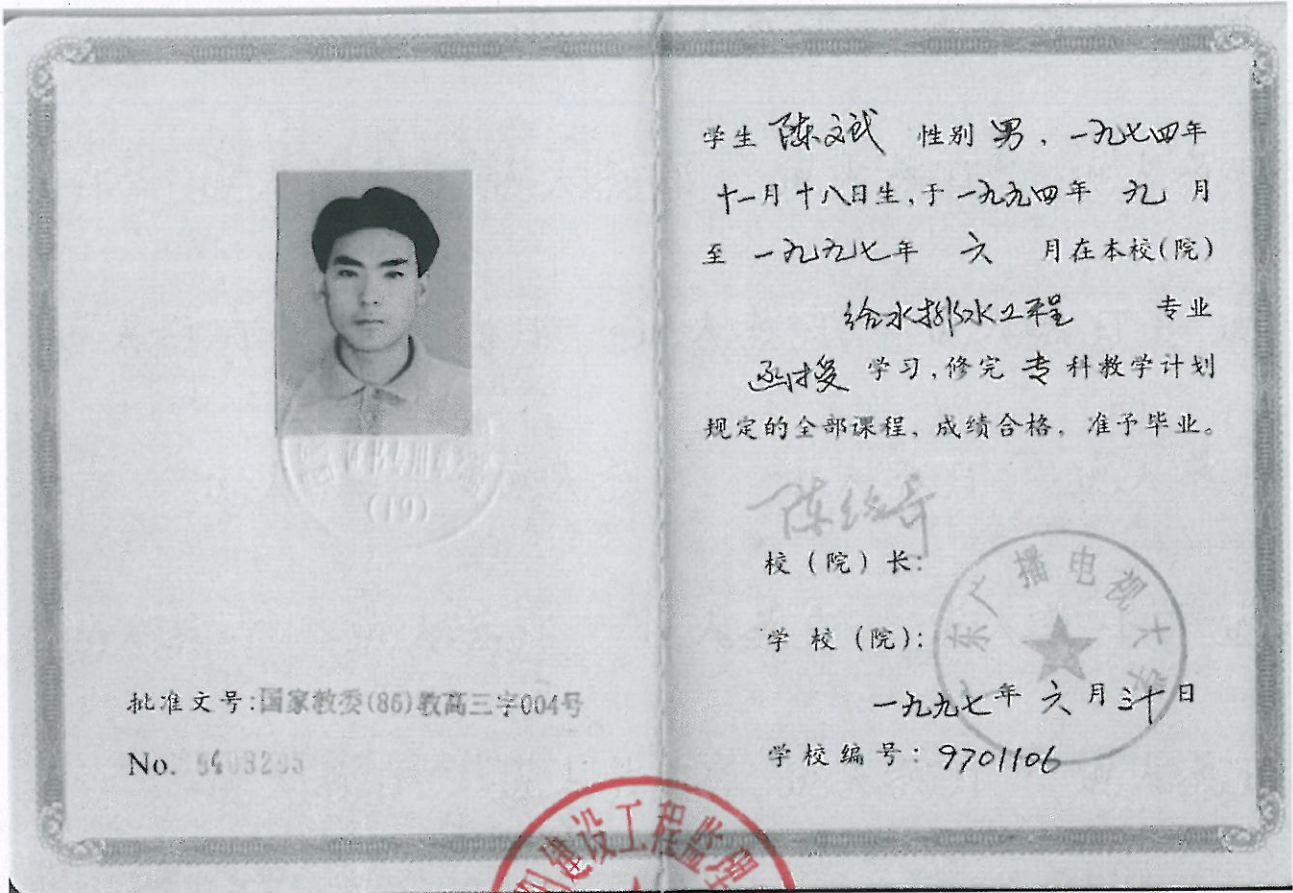 (19)
批准文号:国家教委(86)教高三字004号
No.
学生 陈文武 性别 男，一九七四年
十一月十八日生,于一九九四年 九 月
至 一九九七年 六 月在本校(院)
给水排水工程 专业
函授 学习,修完 专 科教学计划
规定的全部课程，成绩合格，准予毕业。
校(院)长:
学校(院):
东广播电视大学
一九九七年 六 月三十日
学校编号: 9701106
建设工程监理